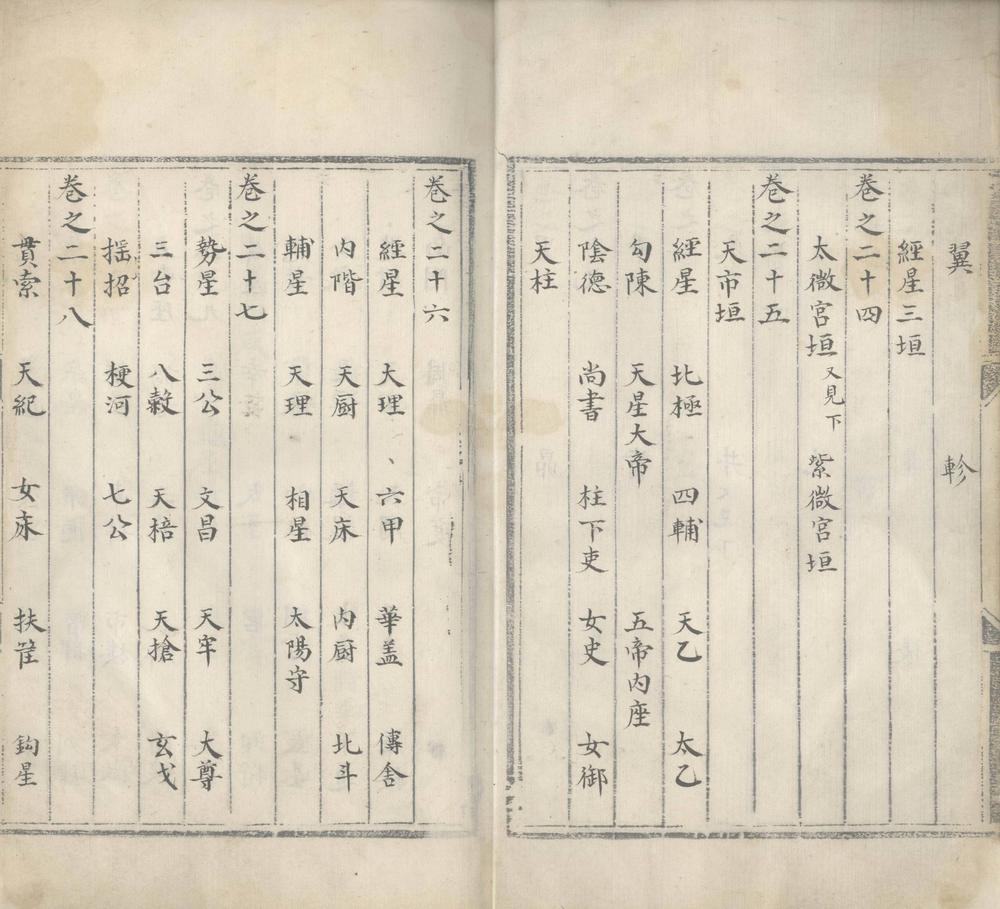 翼 軫
經星三垣
卷之二十四
太微宮垣 又見下 紫微宮垣
卷之二十五
天市垣
經星 北極 四輔 天乙 太乙
勾陳 天星大帝 五帝內座
陰德 尚書 柱下吏 女史 女御
天柱
卷之二十六
經星 大理 六甲 華盖 傳舍
內階 天厨 天床 內厨 北斗
輔星 天理 相星 太陽守
卷之二十七
勢星 三公 文昌 天牢 大尊
三台 八糓 天棓 天搶 玄戈
揺招 梗河 七公
卷之二十八
貫索 天紀 女床 扶筐 鈎星